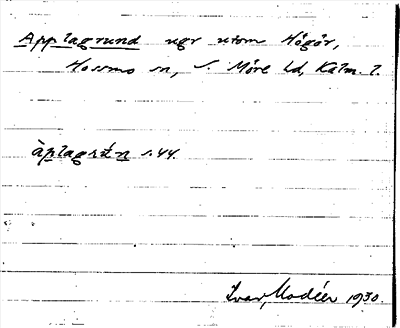 Applagrund ugr utom Högör,
Hossmo sn, S. Möre hd, Kalm. l.
àplagrưn s. 44.
Ivar Modéer 1930.